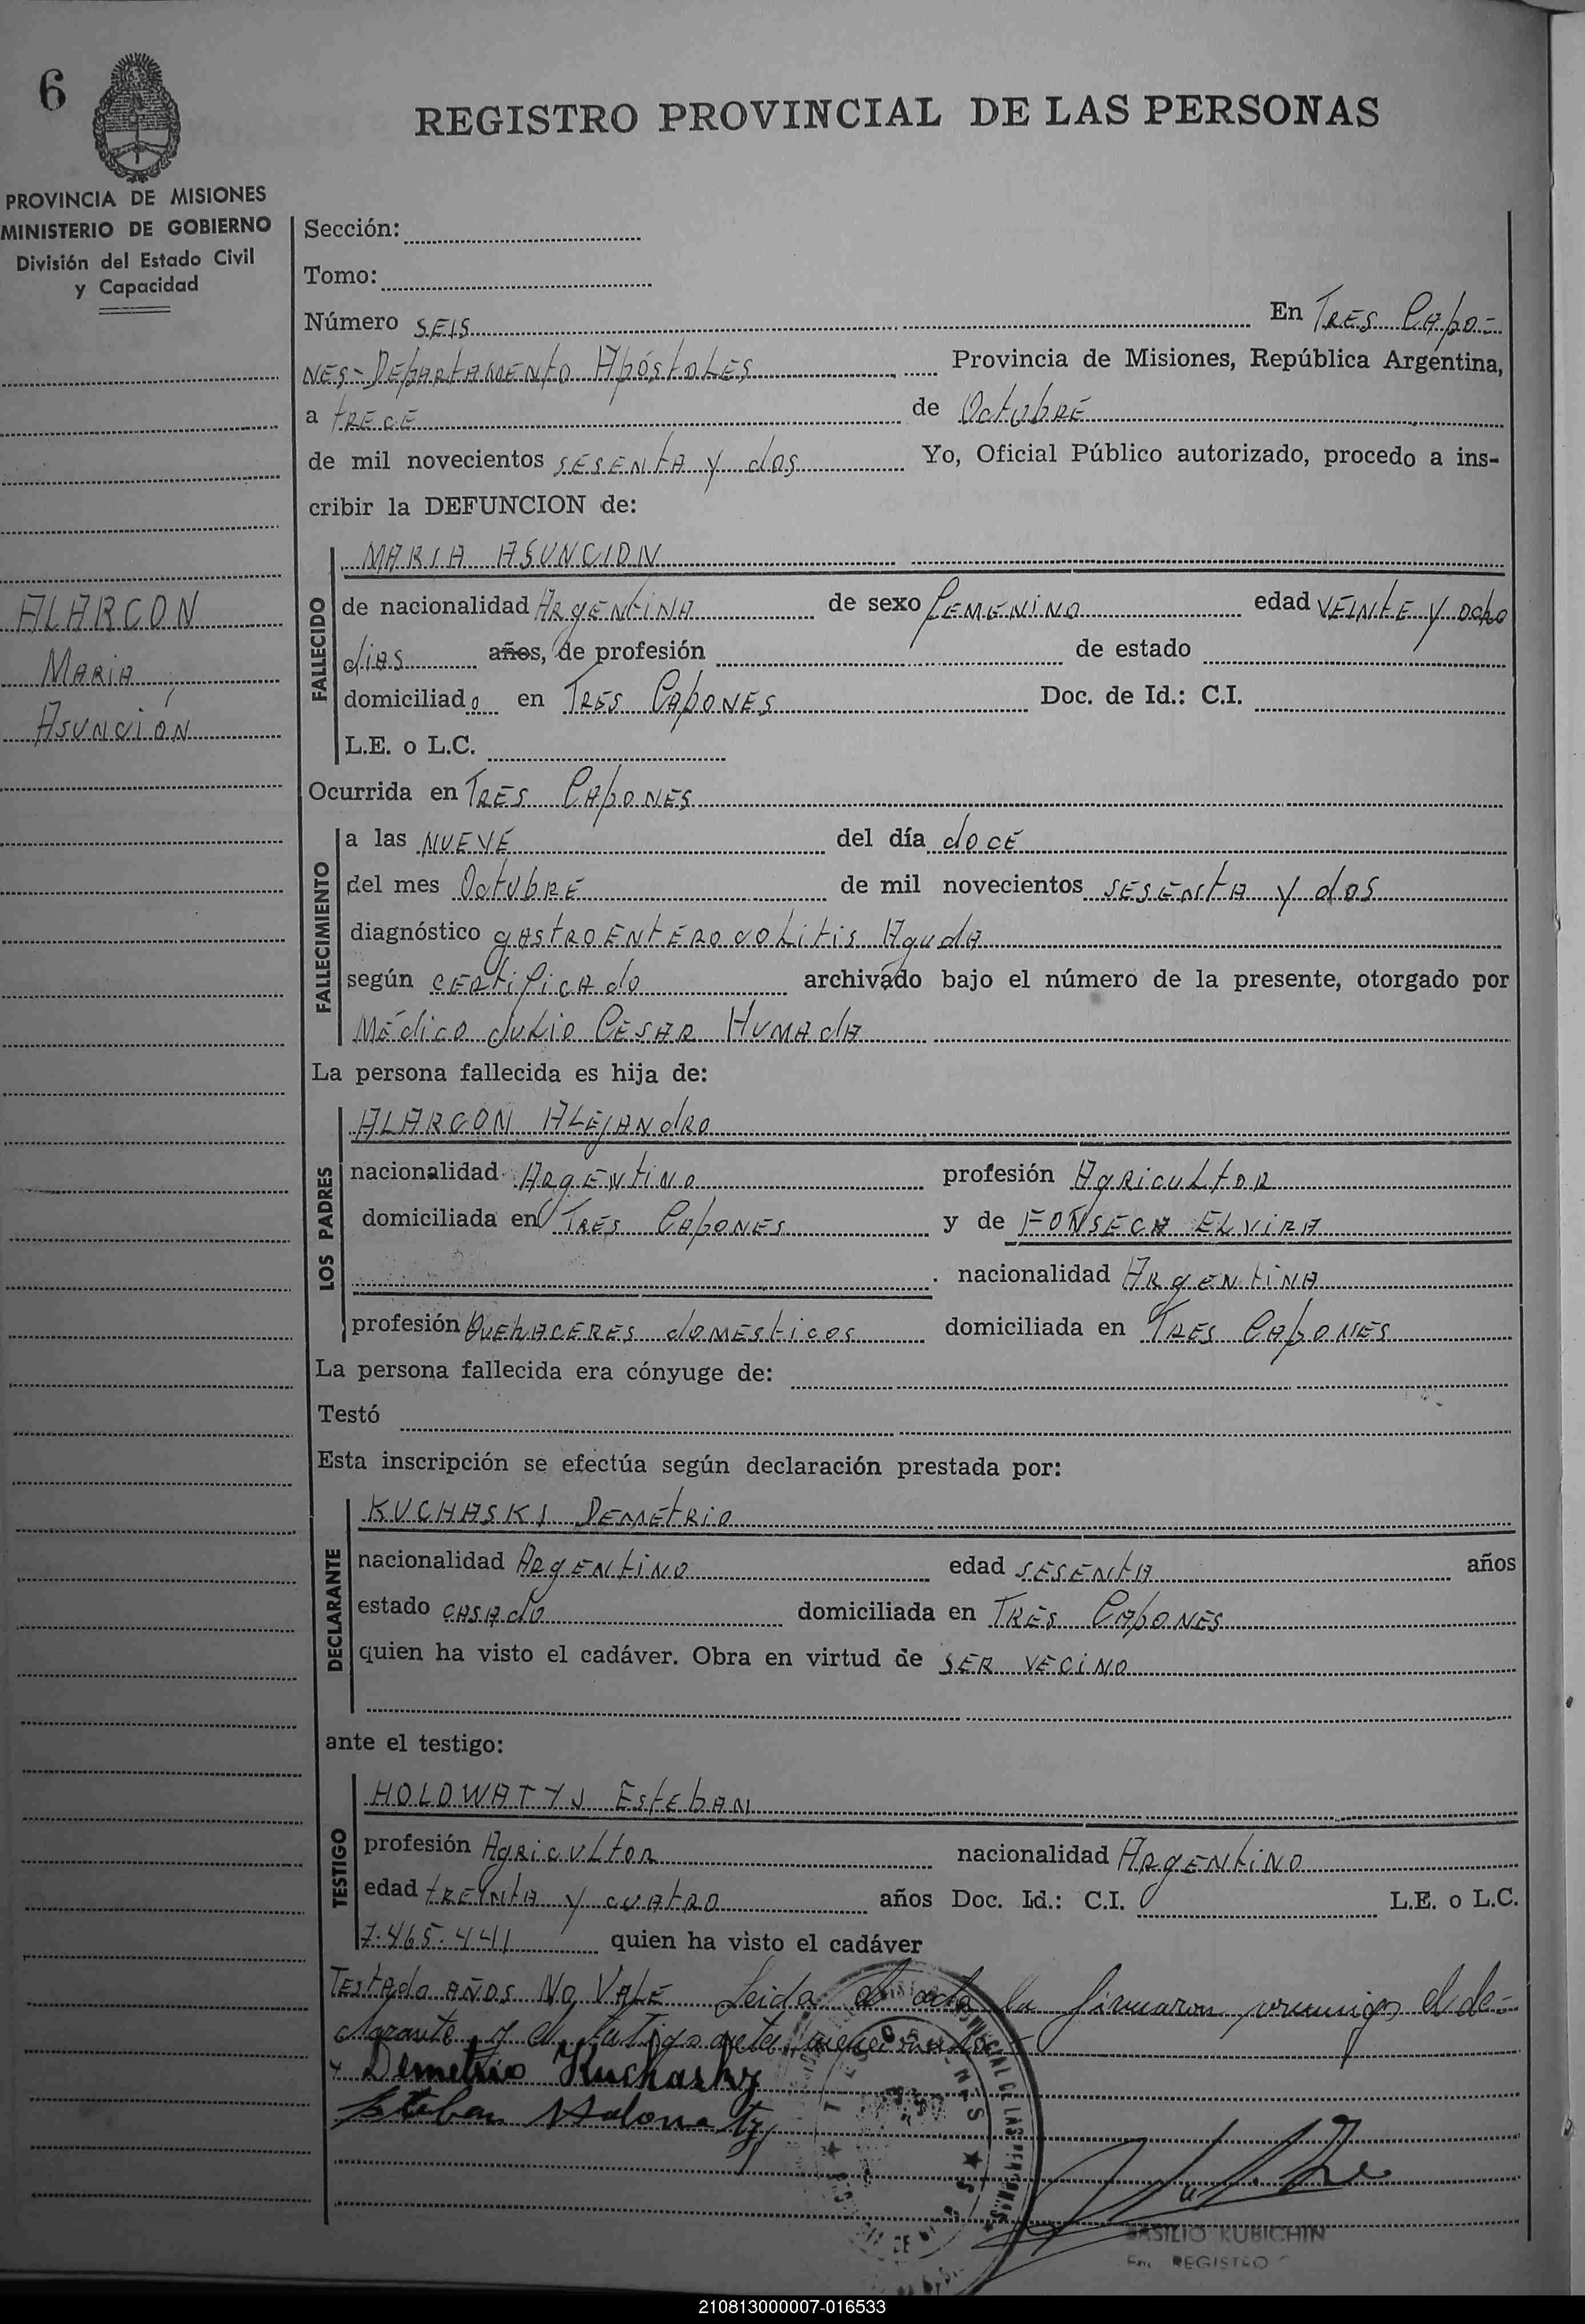 6
REGISTRO PROVINCIAL DE LAS PERSONAS
PROVINCIA DE MISIONES
MINISTERIO DE GOBIERNO
División del Estado Civil
y Capacidad
ALARCON
MARIA
ASUNCIÓN
Sección:
Tomo:
Número SEIS En TRES CApO-
NES-DEpARtAMENtO ApóStOLES Provincia de Misiones, República Argentina,
a tRECE de OctUbRE
de mil novecientos SESENtA y dos Yo, Oficial Público autorizado, procedo a ins-
cribir la DEFUNCION de:
MARIA ASUNCION
FALLECIDO
de nacionalidad ARgENtINA de sexo fEMENINO edad VEINtE y ocho
dias años, de profesión de estado
domiciliado en TRES CApONES Doc. de Id.: C.I.
L.E. o L.C.
Ocurrida en TRES CApONES
FALLECIMIENTO
a las NUEVE del día docE
del mes OctUbRE de mil novecientos SESENtA y doS
diagnóstico gAStROENtEROcOLitis AgudA
según cERtificAdo archivado bajo el número de la presente, otorgado por
Médico JULio CESAR HUMAdA
La persona fallecida es hija de:
LOS PADRES
ALARCON ALEjANdRO
nacionalidad ARgENtiNO profesión AgRicULtOR
domiciliada en TRES CApONES y de FONSECA ELViRA
nacionalidad ARgENtiNA
profesión QUEhACERES dOMESticos domiciliada en TRES CApONES
La persona fallecida era cónyuge de:
Testó
Esta inscripción se efectúa según declaración prestada por:
DECLARANTE
KUCHASKI DEMEtRiO
nacionalidad ARgENtiNO edad SESENtA años
estado cASAdO domiciliada en TRES CApONES
quien ha visto el cadáver. Obra en virtud de SER VECiNO
ante el testigo:
TESTIGO
HOLOWATYJ EStEbAN
profesión AgRicULtOR nacionalidad ARgENtiNO
edad tREINtA y cUAtRO años Doc. Id.: C.I. L.E. o L.C.
7.465.441 quien ha visto el cadáver
TEStAdo AÑOS NO VALE Leida el acta la firmaron conmigo el de-
clarante y el testigo
Demetrio Kucharky
Esteban Holowaty
BASILIO KUBICHIN
REGISTRO
210813000007-016533